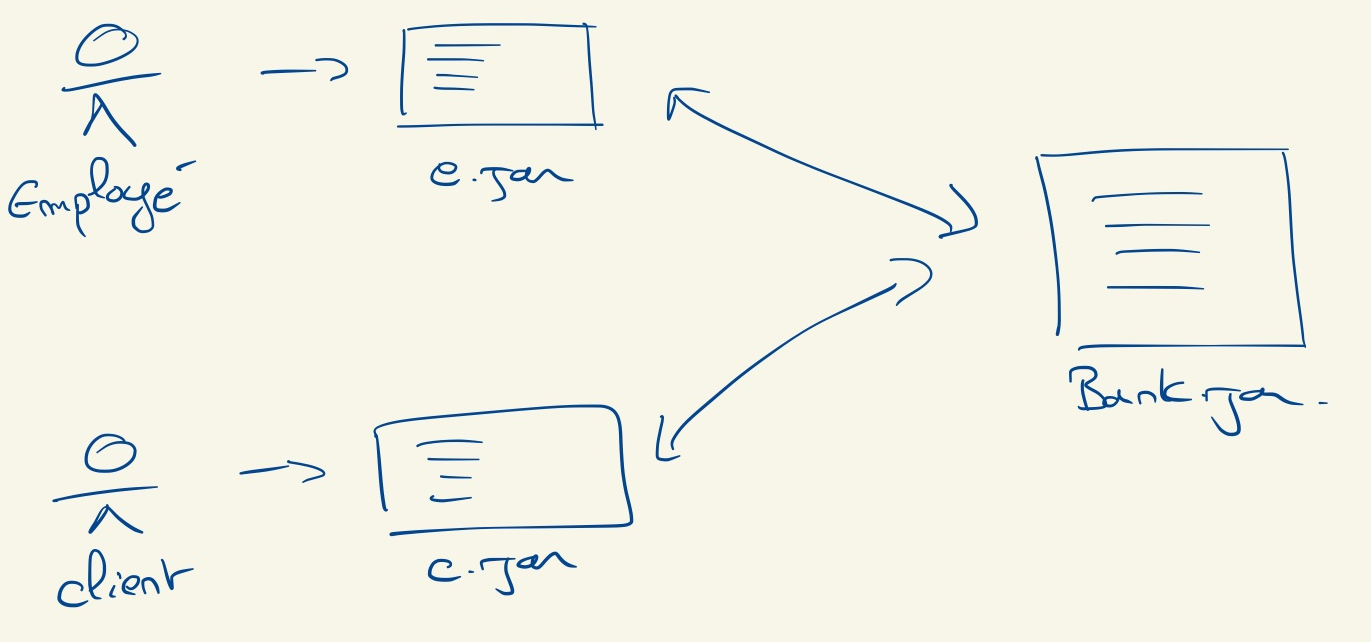 Employé
e.jar
Bank.jar
client
c.jar